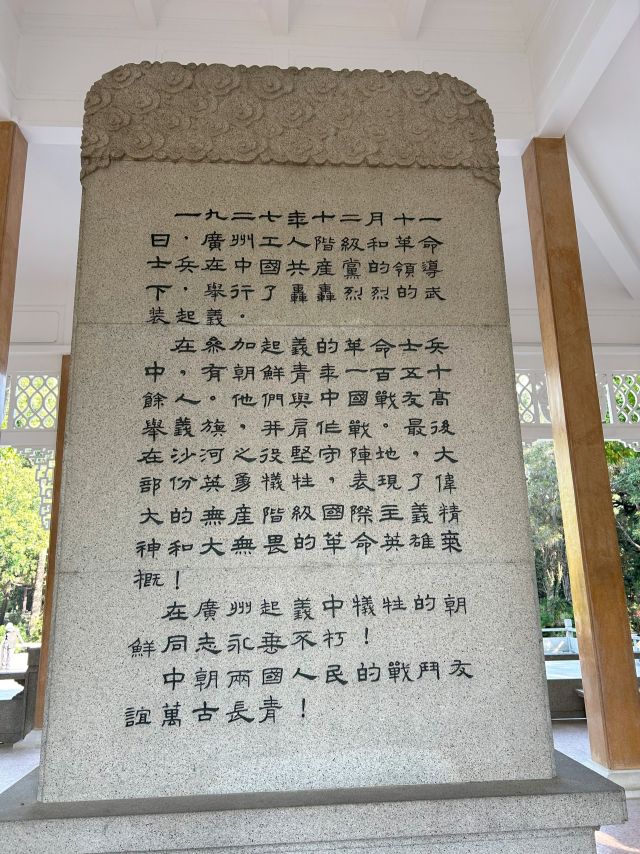 一九二七年十二月十一
日，廣州工人階級和革命
士兵在中國共產黨的領導
下，舉行了轟轟烈烈的武
装起義。
在叅加起義的革命士兵
中，有朝鮮青年一百五十
餘人。他們與中國戰友高
舉義旗，并肩作戰。最後
在沙河之役堅守陣地，大
部份英勇犧牲，表現了偉
大的無產階級國際主義精
神和大無畏的革命英雄氣
概！
在廣州起義中犧牲的朝
鮮同志永垂不朽！
中朝兩國人民的戰鬥友
誼萬古長青！